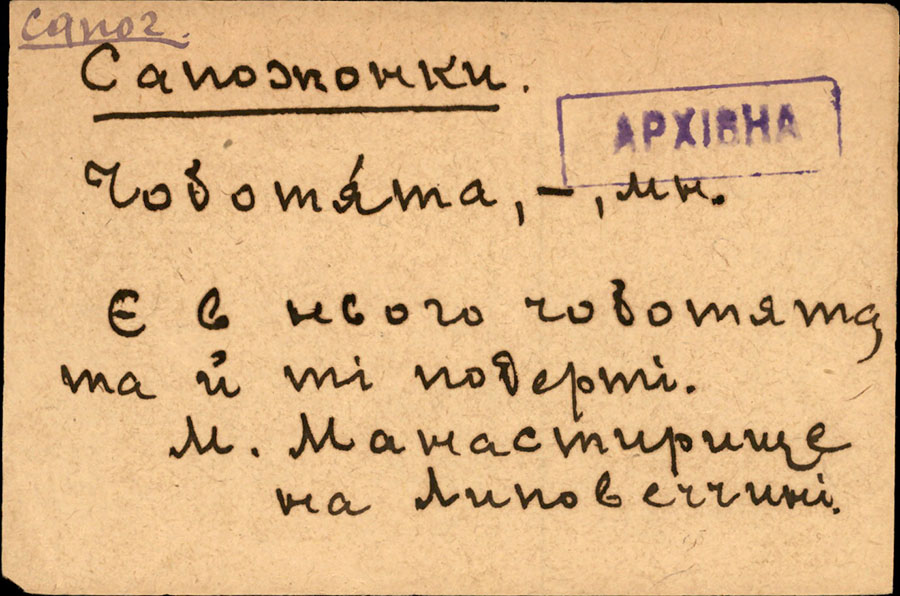 сапог.
Сапожонки.
АРХІВНА
Чоботя́та, –, мн.
Є в нього чоботята,
та й ті подерті.
М. Манастирище
на Липовеччині.